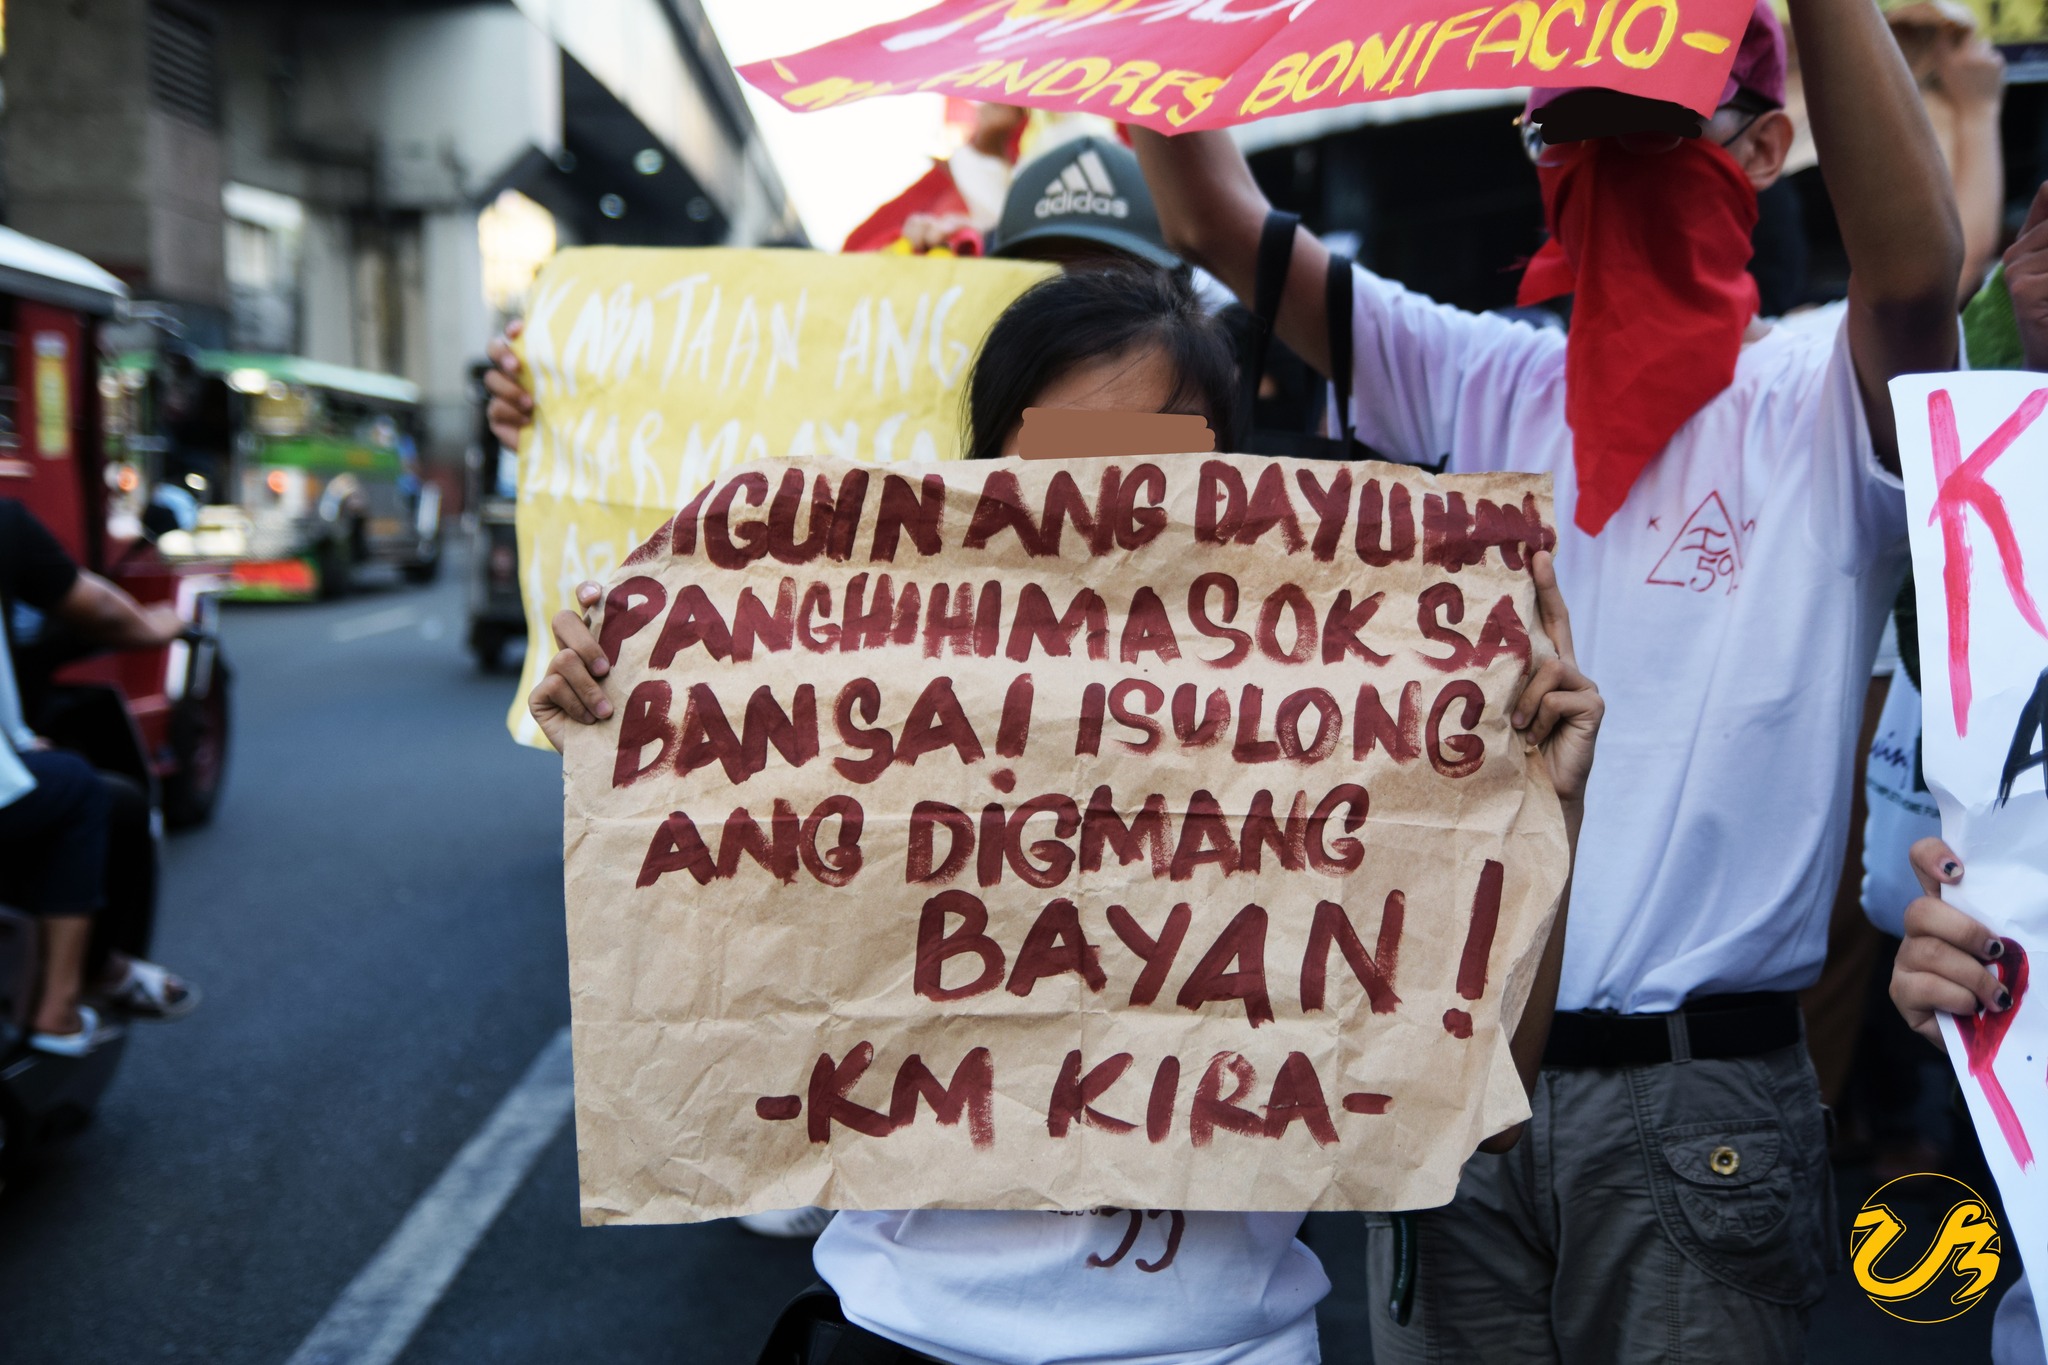 - ANDRES BONIFACIO -
adidas
KABATAAN ANG
IGUIN ANG DAYUHAN
PANGHIHIMASOK SA
BANSA! ISULONG
ANG DIGMANG
BAYAN!
-KM KIRA-
K M
59
K
A